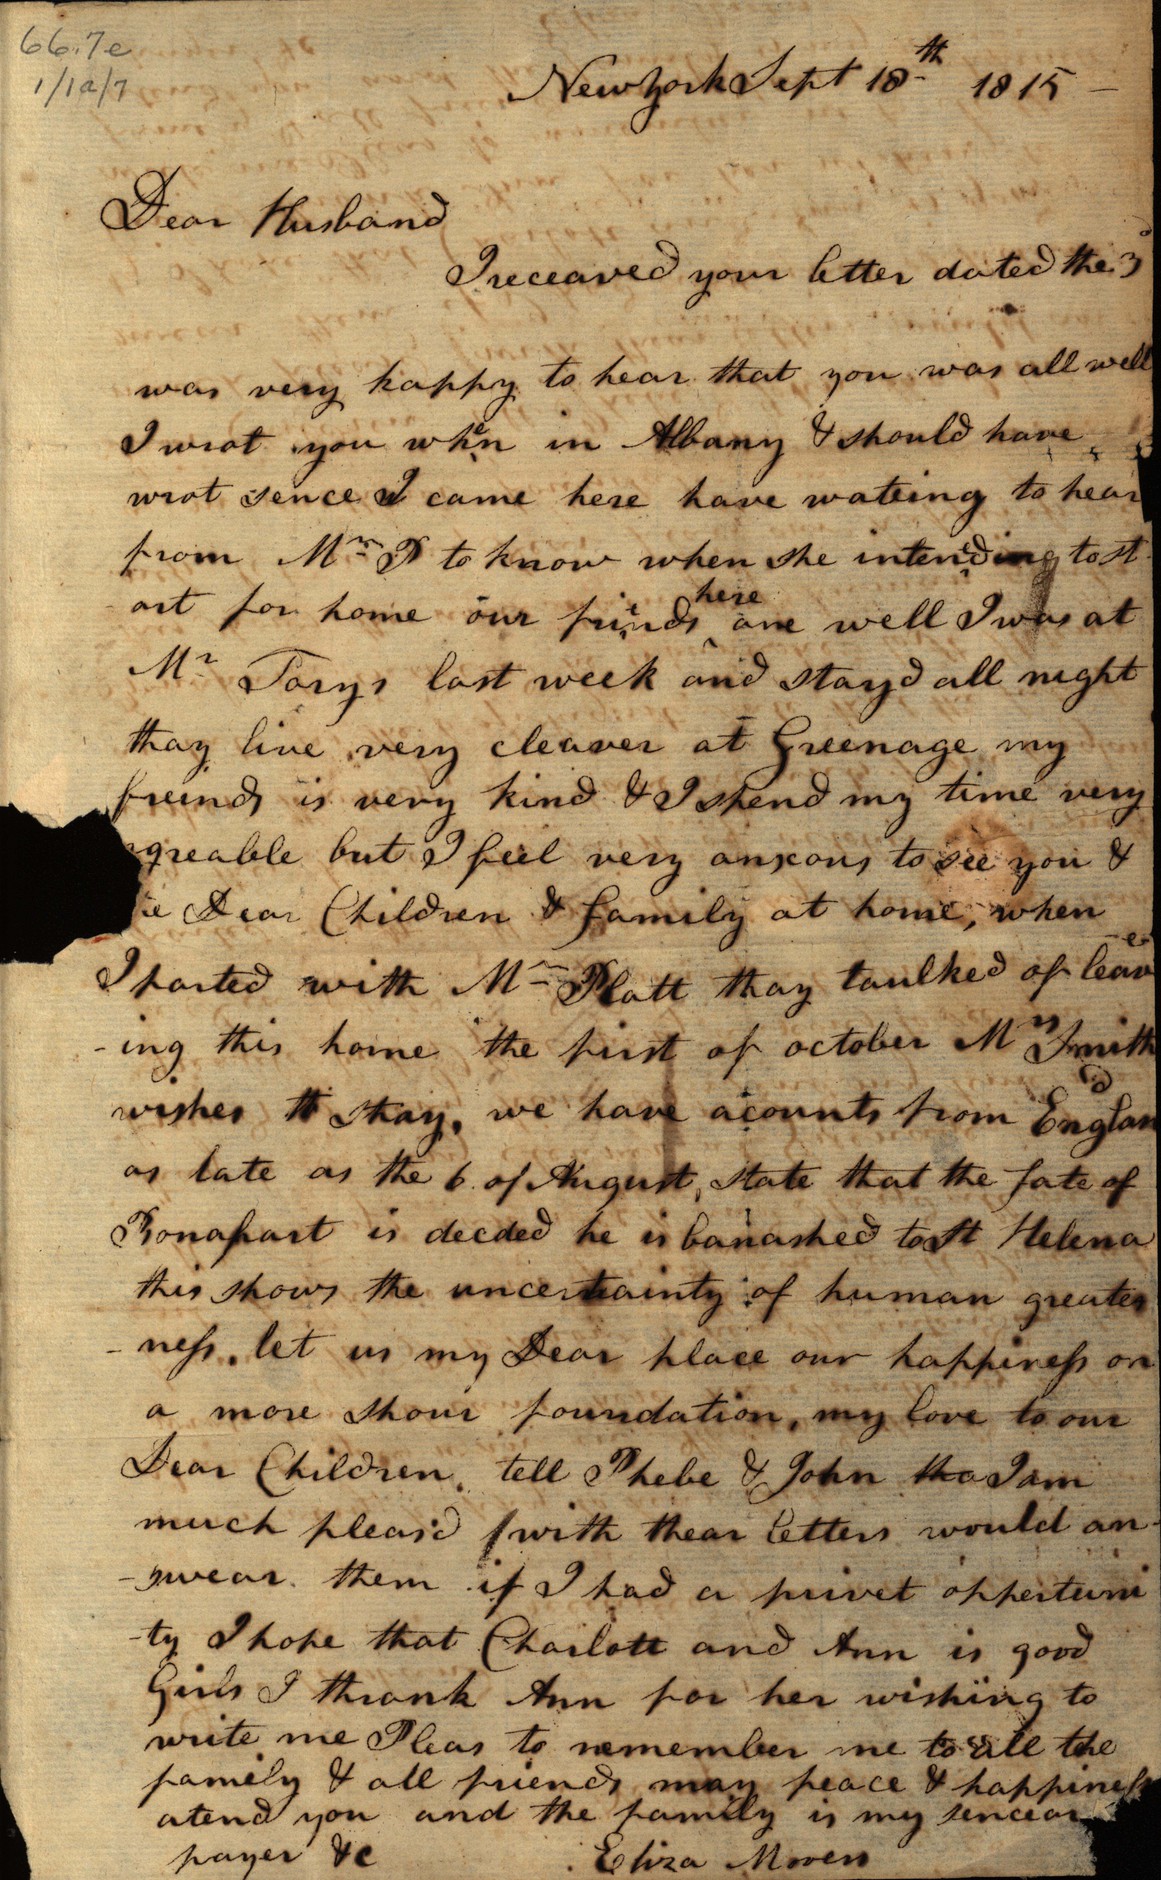 66.7e
1/1a/7
New York Sept 18th 1815
Dear Husband
I receaved your letter dated the 3d
was very happy to hear that you was all well
I wrot you when in Albany & should have
wrot sence I came here have wateing to hear
from Mrs P to know when she intended to st
art for home our friends here are well I was at
Mr Torys last week and stayd all night
thay live very cleaver at Greenage my
freinds is very kind & I spend my time very
agreable but I feel very anxous to see you &
e Dear Children & family at home, when
I parted with Mrs Platt thay taulked of leave
-ing this home the first of october Mrs Smith
wishes to stay, we have acounts from England
as late as the 6 of August, state that the fate of
Bonapart is decded he is banashed to St Helena
this shows the uncertainty of human greater
-ness, let us my Dear place our happiness on
a more shour foundation, my love to our
Dear Children, tell Phebe & John tha I am
much pleas'd with thear letters would an-
-swear them if I had a privet oppertuni
-ty I hope that Charlott and Ann is good
Girls I thrank Ann for her wishing to
write me Pleas to remember me to all the
family & all friends may peace & happiness
atend you and the family is my sencear
payer &c Eliza Mooers